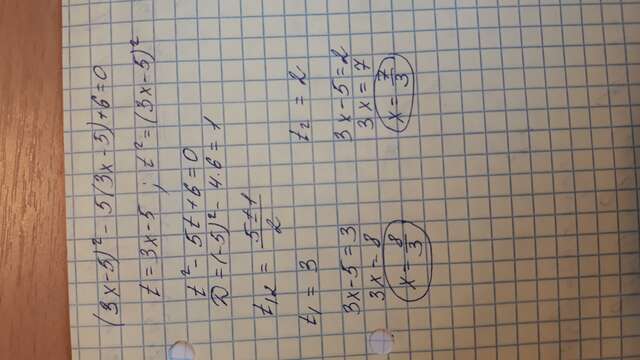 (3x-5)² - 5(3x-5)+6=0
t = 3x-5 ; t² = (3x-5)²
t² - 5t+6=0
D=(-5)² - 4·6=1
t₁,₂ = (5±1)/2
t₁ = 3 t₂ = 2
3x-5=3 3x-5=2
3x=8 3x=7
x=8/3 x=7/3